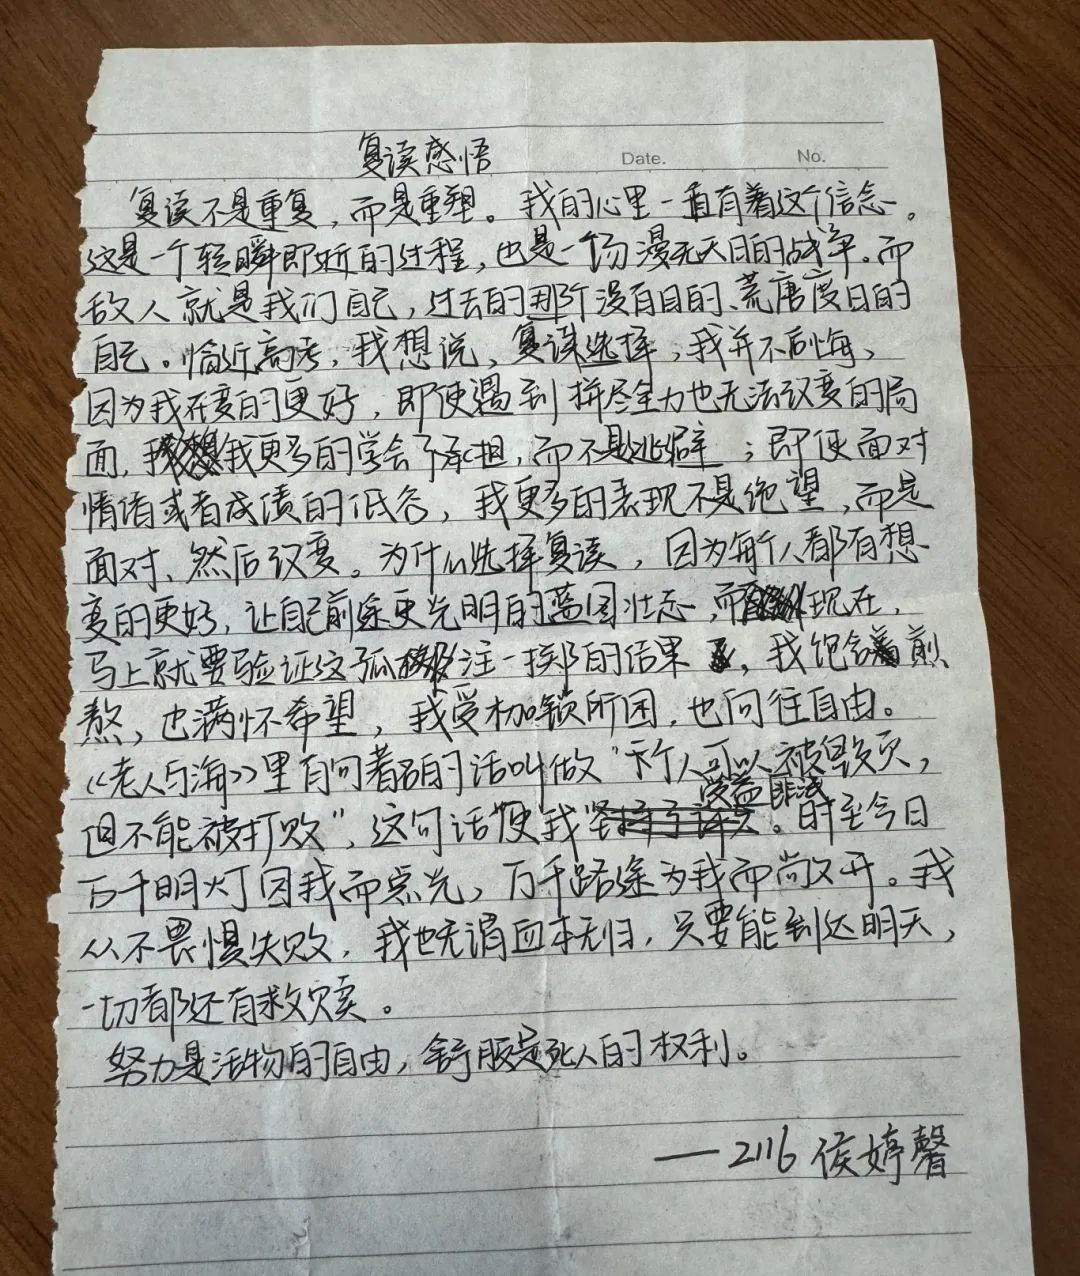 复读感悟
Date.
No.
复读不是重复，而是重塑。我的心里一直有着这个信念。
这是一个转瞬即逝的过程，也是一场漫无天日的战争。而
敌人就是我们自己，过去的那个没有目的、荒唐度日的
自己。临近高考，我想说，复读选择，我并不后悔，
因为我在变的更好，即使遇到拼尽全力也无法改变的局
面，我更多的学会了承担，而不是逃避；即使面对
情绪或者成绩的低谷，我更多的表现不是绝望，而是
面对、然后改变。为什么选择复读，因为每个人都有想
变的更好，让自己前途更光明的蓝图壮志，而现在，
马上就要验证这孤注一掷的结果，我饱含着煎
熬，也满怀希望，我受枷锁所困，也向往自由。
《老人与海》里有句著名的话叫做“一个人可以被毁灭，
但不能被打败”，这句话使我受益匪浅。时至今日
万千明灯因我而点光，万千路途为我而敞开。我
从不畏惧失败，我也无谓血本无归，只要能到达明天，
一切都还有救赎。
努力是活物的自由，舒服是死人的权利。
——2116 侯婷馨